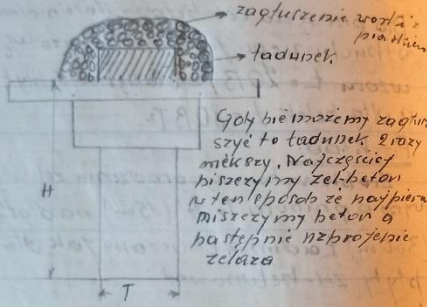 zagłuszenie worki z
piaskiem
ładunek.
Gdy nie możemy zagłu-
szyć to ładunek 2 razy
większy. Najczęściej
niszczymy żel-beton
w ten sposób że najpierw
niszczymy beton a
następnie uzbrojenie
żelaza
H
T